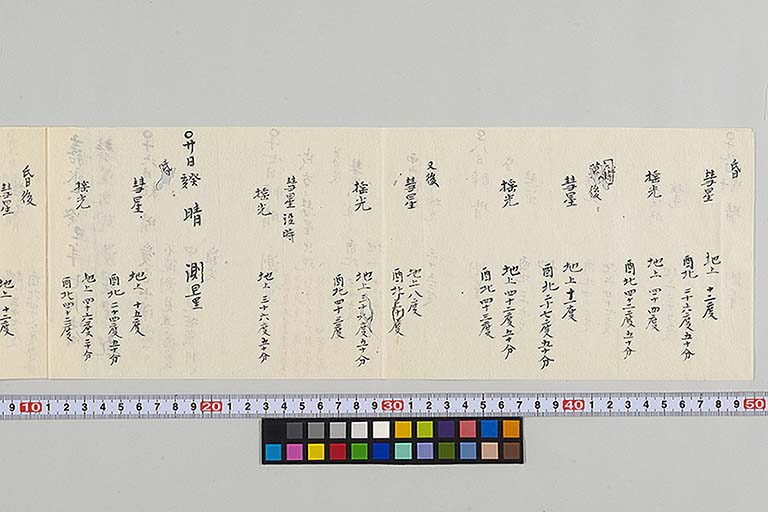 昏
彗星 地上 十二度
酉北 三十六度五十分
揺光 地上 四十四度
酉北 四十二度五十分
後
彗星 地上 十一度
酉北 三十七度五十分
揺光 地上 四十二度五十分
酉北 四十三度
又後
彗星 地上 八度
酉北 度
揺光 地上 三十 度五十分
酉北 四十三度
彗星没時
揺光 地上 三十六度五十分
○廿日 癸 晴 測量
彗星 地上 十五度
酉北 三十四度五十分
揺光 地上 四十六度三十分
酉北 四十二度
昏後
彗星 地上 十二度
9 10 1 2 3 4 5 6 7 8 9 20 1 2 3 4 5 6 7 8 9 30 1 2 3 4 5 6 7 8 9 40 1 2 3 4 5 6 7 8 9 50